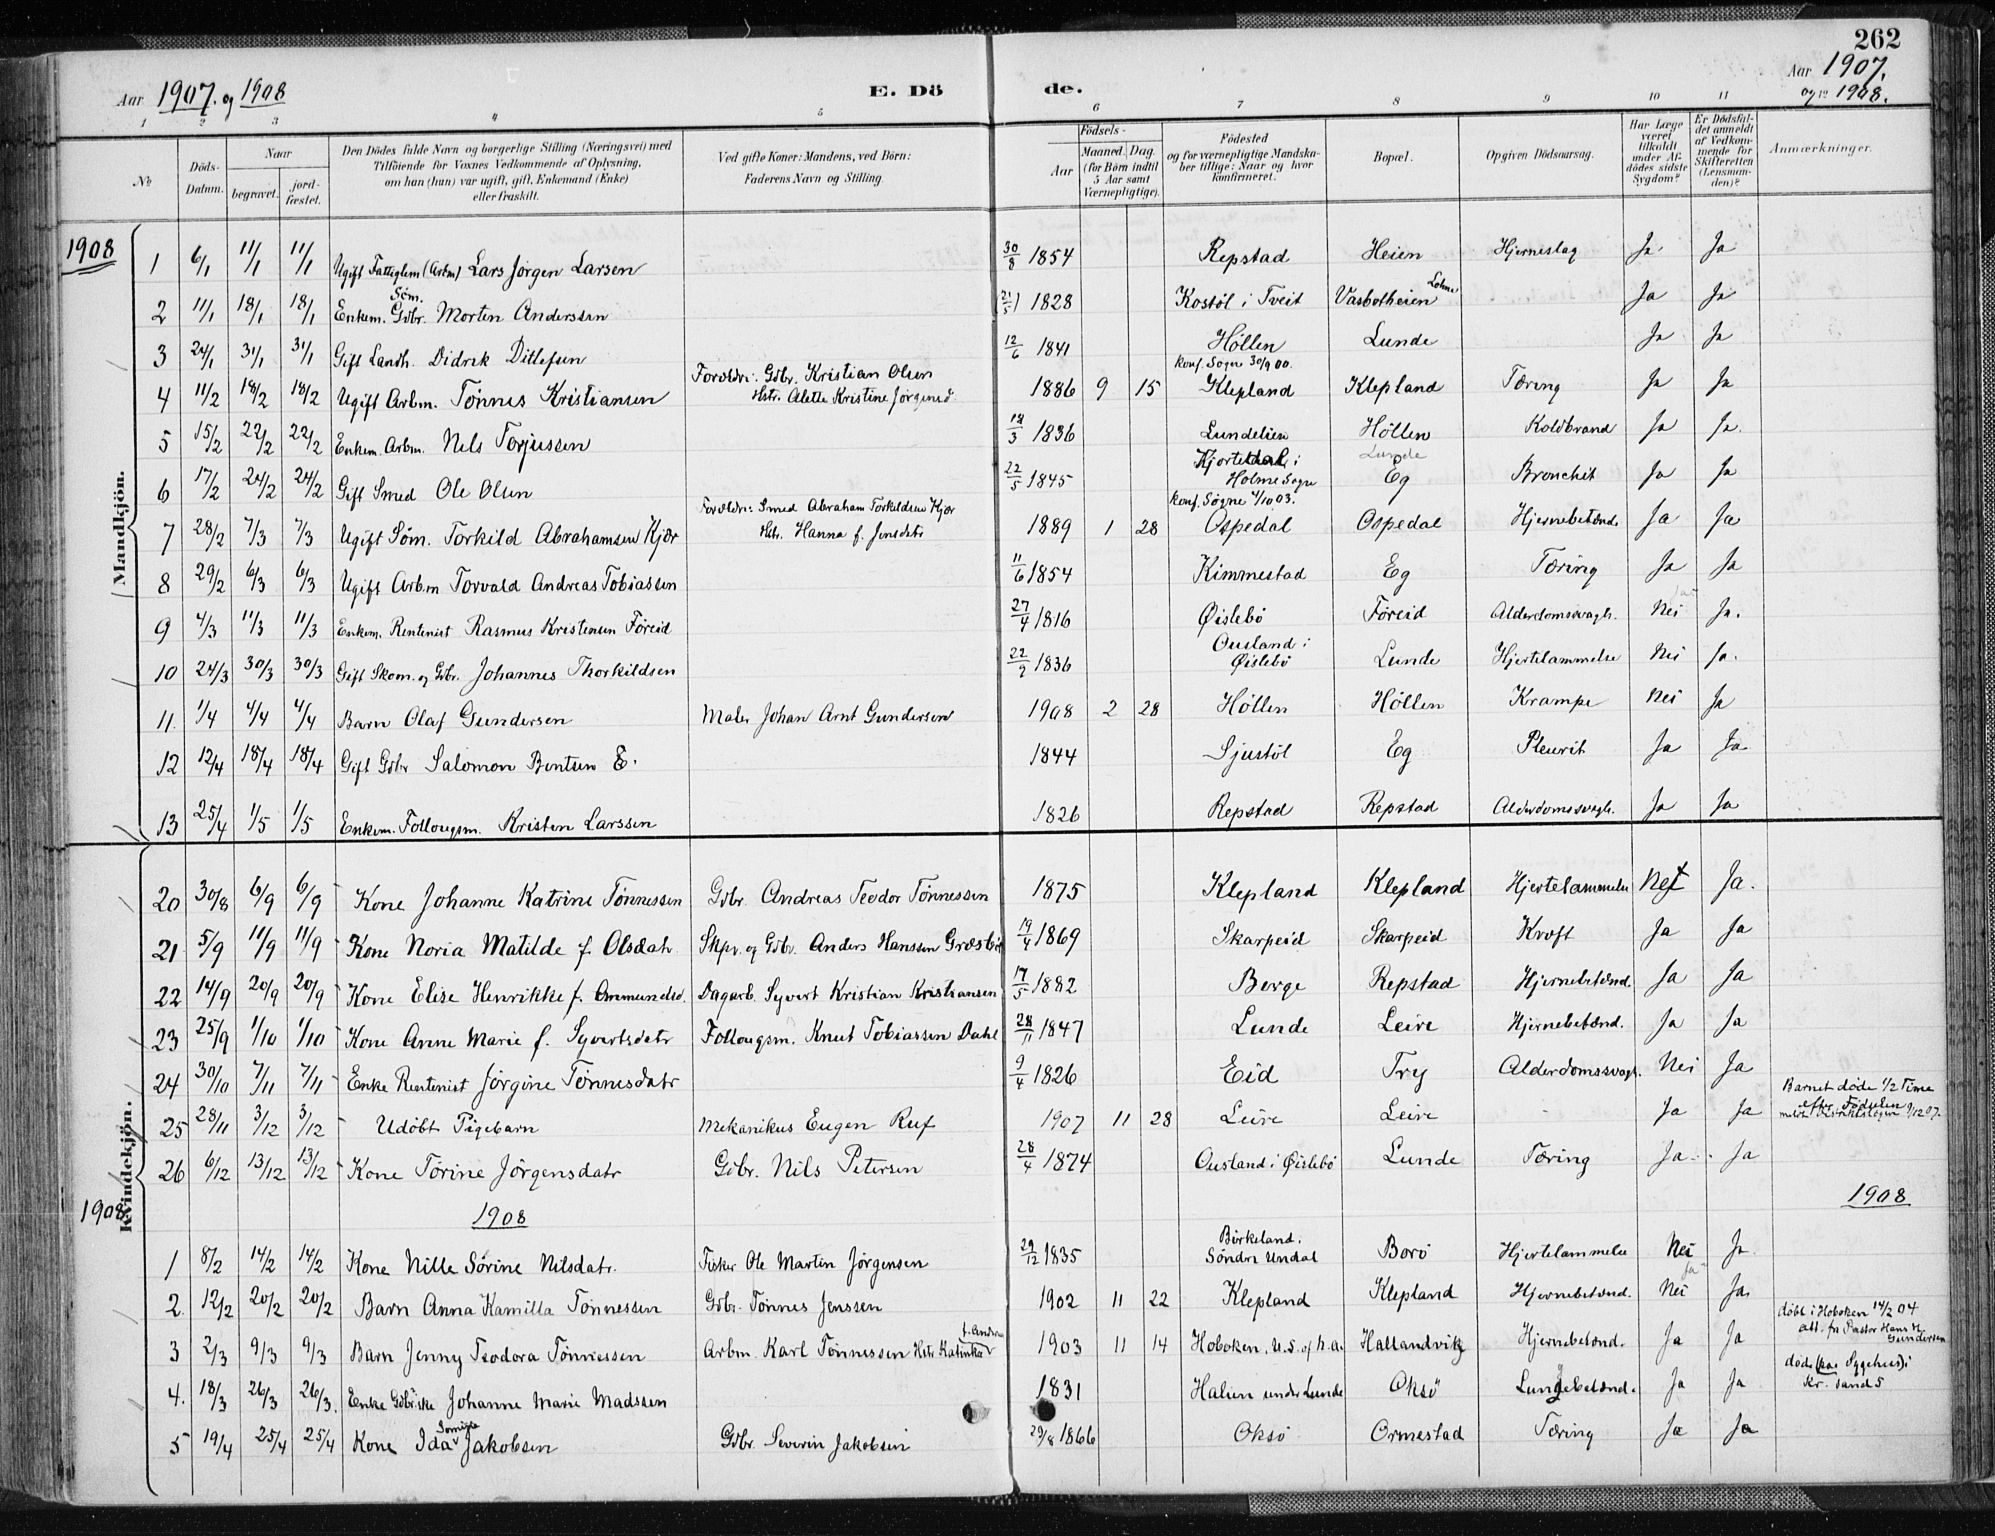 262
Aar 1907. og 1908
E. Dö de.
Aar 1907.
og 12 1908.
1 2 3 4 5 6 7 8 9 10 11
No
Döds-Datum.
Naar
begravet.
jord-fæstet.
Den Dödes fulde Navn og borgerlige Stilling (Næringsvei) med
Tilföiende for Voxnes Vedkommende af Oplysning,
om han (hun) var ugift, gift, Enkemand (Enke)
eller fraskilt.
Ved gifte Koner: Mandens, ved Börn:
Faderens Navn og Stilling.
Födsels-
Aar
Maaned. Dag.
(for Börn indtil
5 Aar samt
Værnepligtige).
Födested
og for værnepligtige Mandska-
ber tillige: Naar og hvor
konfirmeret.
Bopæl.
Opgiven Dödsaarsag.
Har Læge
været
tilkaldt
under Af-
dödes sidste
Sygdom?
Er Dödsfal-
det anmeldt
af Vedkom-
mende for
Skifteretten
(Lensman-
den)?
Anmærkninger.
1908
Mandkjön.
1 6/1 11/1 11/1 Ugift Fattiglem (Arbm) Lars Jørgen Larsen 30/8 1854 Repstad Heien Hjerneslag Ja Ja
2 11/1 18/1 18/1 Enkem. Söm. Gdbr. Morten Anderssen (21/5) 1828 Kostøl i Tveit Vasbotheien Lohne Ja Ja
3 24/1 31/1 31/1 Gift Landh. Didrik Ditlefsen 12/6 1841 Høllen Lunde Ja Ja
4 11/2 18/2 18/2 Ugift Arbm. Tønnes Kristiansen Forældre: Gdbr. Kristian Olsen Hstr. Alette Kristine Jørgensd. 1886 9 15 konf. Sogne 30/9 00. Klepland Klepland Tæring Ja Ja
5 15/2 22/2 22/2 Enkem. Arbm. Nels Torjussen 18/3 1836 Lundelien Høllen Lunde Koldbrand Ja Ja.
6 17/2 24/2 24/2 Gift Smed Ole Olsen 22/5 1845 i Holme Sogn Eg Bronchit Ja Ja
7 28/2 7/3 7/3 Ugift Söm. Torkild Abrahamsen Kjær Forældre: Smed Abraham Torkildsen Kjær Hstr. Hanna f. Jensdatr 1889 1 28 konf. Søgne 4/10 03. Ospedal Ospedal Hjernebetænd. Ja Ja
8 29/2 6/3 6/3 Ugift Arbm Torvald Andreas Tobiassen 11/6 1854 Kimmestad Eg Tæring Ja Ja
9 4/3 11/3 11/3 Enkem. Rentenist Rasmus Kristensen Föreid 27/4 1816 Øislebö Föreid Alderdomssvagh. Nei Ja.
10 24/3 30/3 30/3 Gift Skom. og Gdbr. Johannes Thorkildsen 22/9 1836 Ousland i Øislebö Lunde Hjertelammelse Nei Ja.
11. 1/4 4/4 4/4 Barn Olaf Gundersen Maler Johan Arnt Gundersen 1908 2 28 Høllen Høllen Krampe Nei Ja
12 12/4 18/4 18/4 Gift Gdbr Salomon Bentsen E. 1844 Sjustöl Eg Pleurit Ja Ja
13 25/4 1/5 1/5 Enkem. Follougsm. Kristen Larssen 1826 Repstad Repstad Alderdomssvagh. Ja Ja
Kvindekjön.
20 30/8 6/9 6/9 Kone Johanne Katrine Tønnessen Gdbr. Andreas Teodor Tønnessen 1875 Klepland Klepland Hjertelammelse Nei Ja.
21 5/9 11/9 11/9 Kone Noria Matilde f. Olsdatr. Skpr. og Gdbr. Anders Hanssen 19/4 1869 Skarpeid Skarpeid Kræft Ja Ja
22 14/9 20/9 20/9 Kone Elise Henrikke f. Ommundsd. Dagarb. Syvert Kristian Kristiansen 17/5 1882 Berge Repstad Hjernebetænd. Ja Ja
23 25/9 1/10 1/10 Kone Anne Marie f. Syvertsdatr Follougsm. Knut Tobiassen Dahl 28/11 1847 Lunde Leire Hjernebetænd. Ja Ja
24 30/10 7/11 7/11 Enke Rentenist Jörgine Tønnesdatr 9/4 1826 Eid Try Alderdomssvagh. Nei Ja
25 28/11 3/12 3/12 Udöbt Pigebarn Mekanikus Eugen Ruf 1907 11 28 Leire Leire - Ja Ja Barnet døde 1/2 Time
efter Födselen
9/12 07.
26 6/12 13/12 13/12 Kone Törine Jörgensdatr Gdbr. Nils Petersen 28/4 1874 Ousland i Øislebö Lunde Tæring Ja Ja
1908 1908 1908
1 8/2 14/2 14/2 Kone Nille Sörine Nilsdatr. Fisker Ole Martin Jørgensen 29/12 1835 Birkeland, Söndre Undal Borö Hjertelammelse Nei Ja
2. 12/2 20/2 20/2 Barn Anna Kamilla Tønnessen Gdbr. Tønnes Jenssen 1902 11 22 Klepland Klepland Hjernebetænd. Nei Ja Ja.
3 2/3 9/3 9/3 Barn Jenny Teodora Tønnessen Arbm. Karl Tønnessen Hstr Katinka 1903 11 14 Hoboken, U.S. of N.A. Hallandvik Hjernebetænd. Ja Ja döbt i Hoboken 14/2 04
att. fra Pastor Hans H
Gundersen
4. 18/3 26/3 26/3. Enke Gdbr.ske Johanne Marie Madssen 1831 Halien under Lunde Oksö Lungebetænd. Ja Ja døde (paa Sygehus) i
Kr. sand S
5 19/4 25/4 25/4 Kone Ida Jakobsen Gdbr. Severin Jakobsen 29/8 1866 Oksö Ormestad Tæring Ja Ja